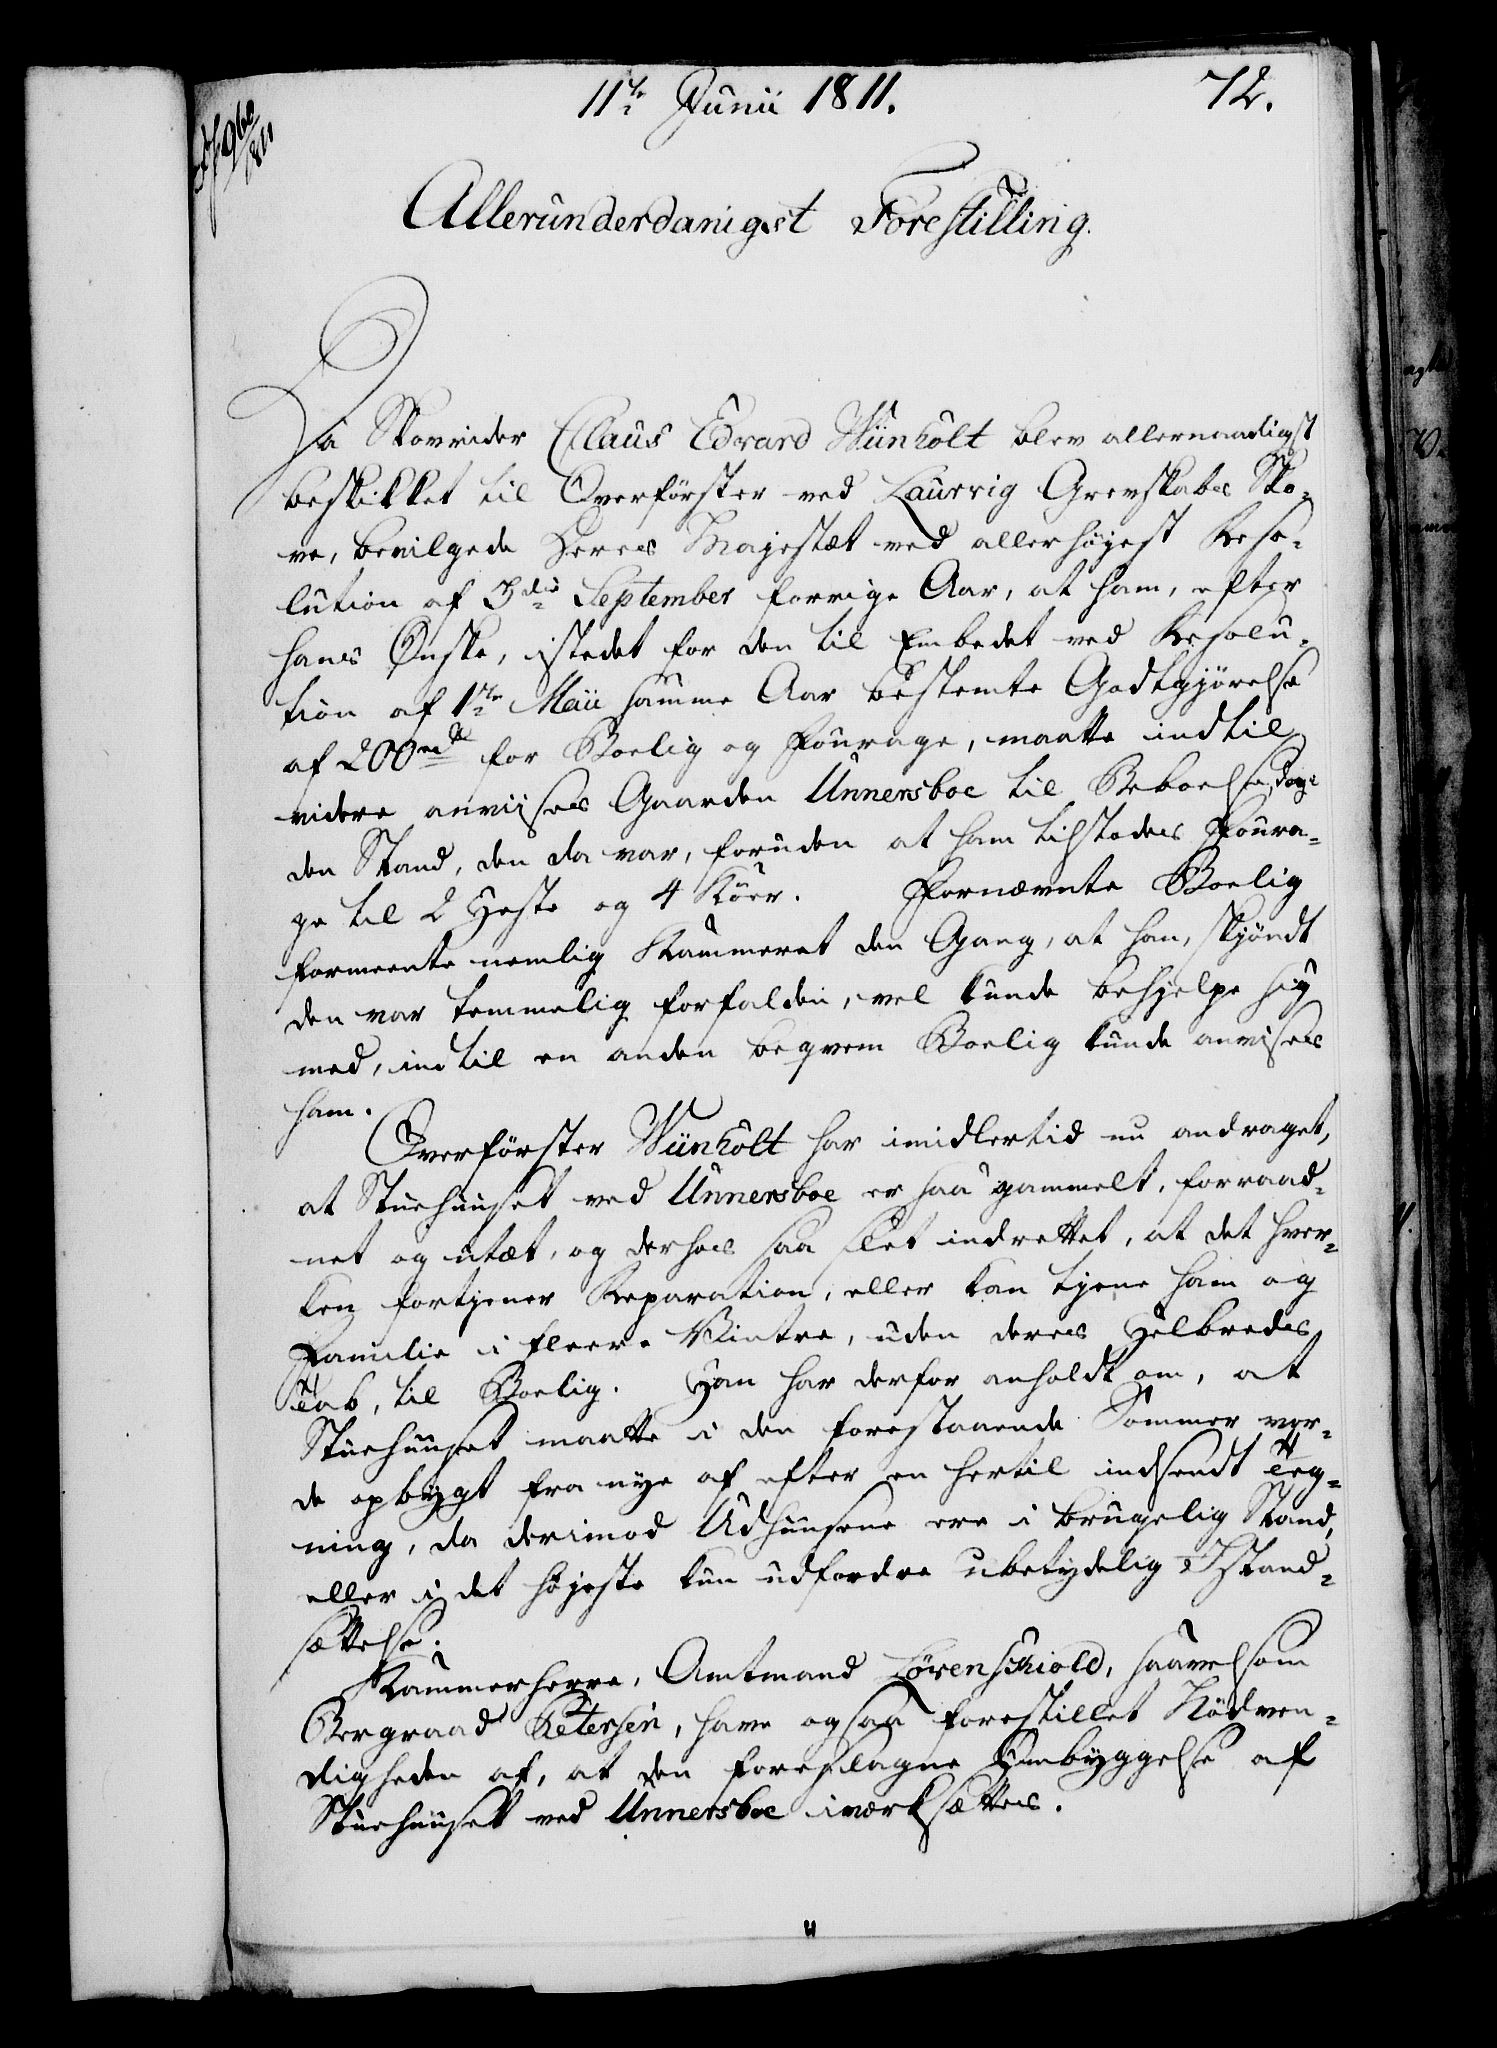 11te Junii 1811.
72.
960
1811
Allerunderdanigst Forestilling.
Da Skovrider Claus Edvard Wünholt blev allernaadigst
beskikket til Overförster ved Laurvig Grevskabs Sko-
ve, bevilgede Deres Majestæt ved allerhöjest Reso-
lution af 3die September forrige Aar, at ham, efter
hans Önske, istedet for den til Embedet ved Resolu-
tion af 1te Maii samme Aar bestemte Godtgjörelse
af 200 rd for Boelig og Fourage, maatte indtil
videre anviises Gaarden Unnersboe til Beboelse, i
den Stand, den da var, foruden at ham tilstodes Foura-
ge til 2 Heste og 4 Köer. Fornævnte Boelig
formeente nemlig Kammeret den Gang, at han, skjöndt
den var temmelig forfalden, vel kunde behjelpe sig
med, indtil en anden beqvem Boelig kunde anvises
ham.
Overförster Wünholt har imidlertid nu andraget,
at Stuehuuset ved Unnersboe er saa gammelt, forraad-
net og utæt, og derhos saa slet indrettet, at det hver-
ken fortjener Reparation, eller kan tjene ham og
Familie i fleere Vintre, uden deres Helbredes
Tab, til Boelig. Han har derfor anholdt om, at
Stuehuuset maatte i den forestaaende Sommer vor-
de opbygt fra nye af efter en hertil indsendt Teg-
ning, da derimod Udhuusene ere i brugelig Stand,
eller i det höjeste kun udfordre ubetydelig Istand-
sættelse.
Kammerherre, Amtmand Lövenschiold, saavelsom
Bergraad Petersen, have ogsaa forestillet Nödven-
digheden af, at den foreslagne Ombyggelse af
Stuehuuset ved Unnersboe iværksættes.